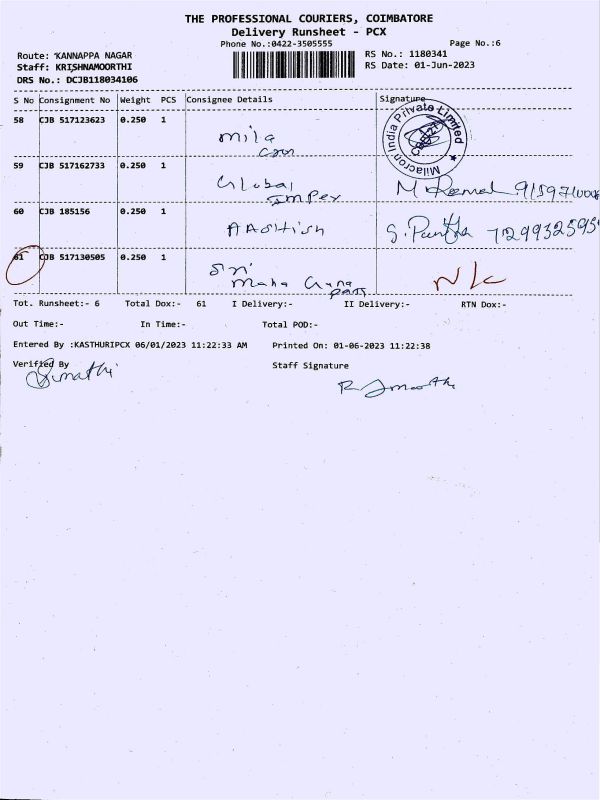 THE PROFESSIONAL COURIERS, COIMBATORE
Delivery Runsheet - PCX
Phone No.:0422-3505555 Page No.:6
Route: KANNAPPA NAGAR RS No.: 1180341
Staff: KRISHNAMOORTHI RS Date: 01-Jun-2023
DRS No.: DCJB118034106
S No Consignment No Weight PCS Consignee Details Signature
58 CJB 517123623 0.250 1 Mila
Milacron India Private Limited
59 CJB 517162733 0.250 1 Global
Impex
60 CJB 185156 0.250 1 AAshish S. 7299325959
61 CJB 517130505 0.250 1 Sri N/C
Maha
Tot. Runsheet:- 6 Total Dox:- 61 I Delivery:- II Delivery:- RTN Dox:-
Out Time:- In Time:- Total POD:-
Entered By :KASTHURIPCX 06/01/2023 11:22:33 AM Printed On: 01-06-2023 11:22:38
Verified By Staff Signature